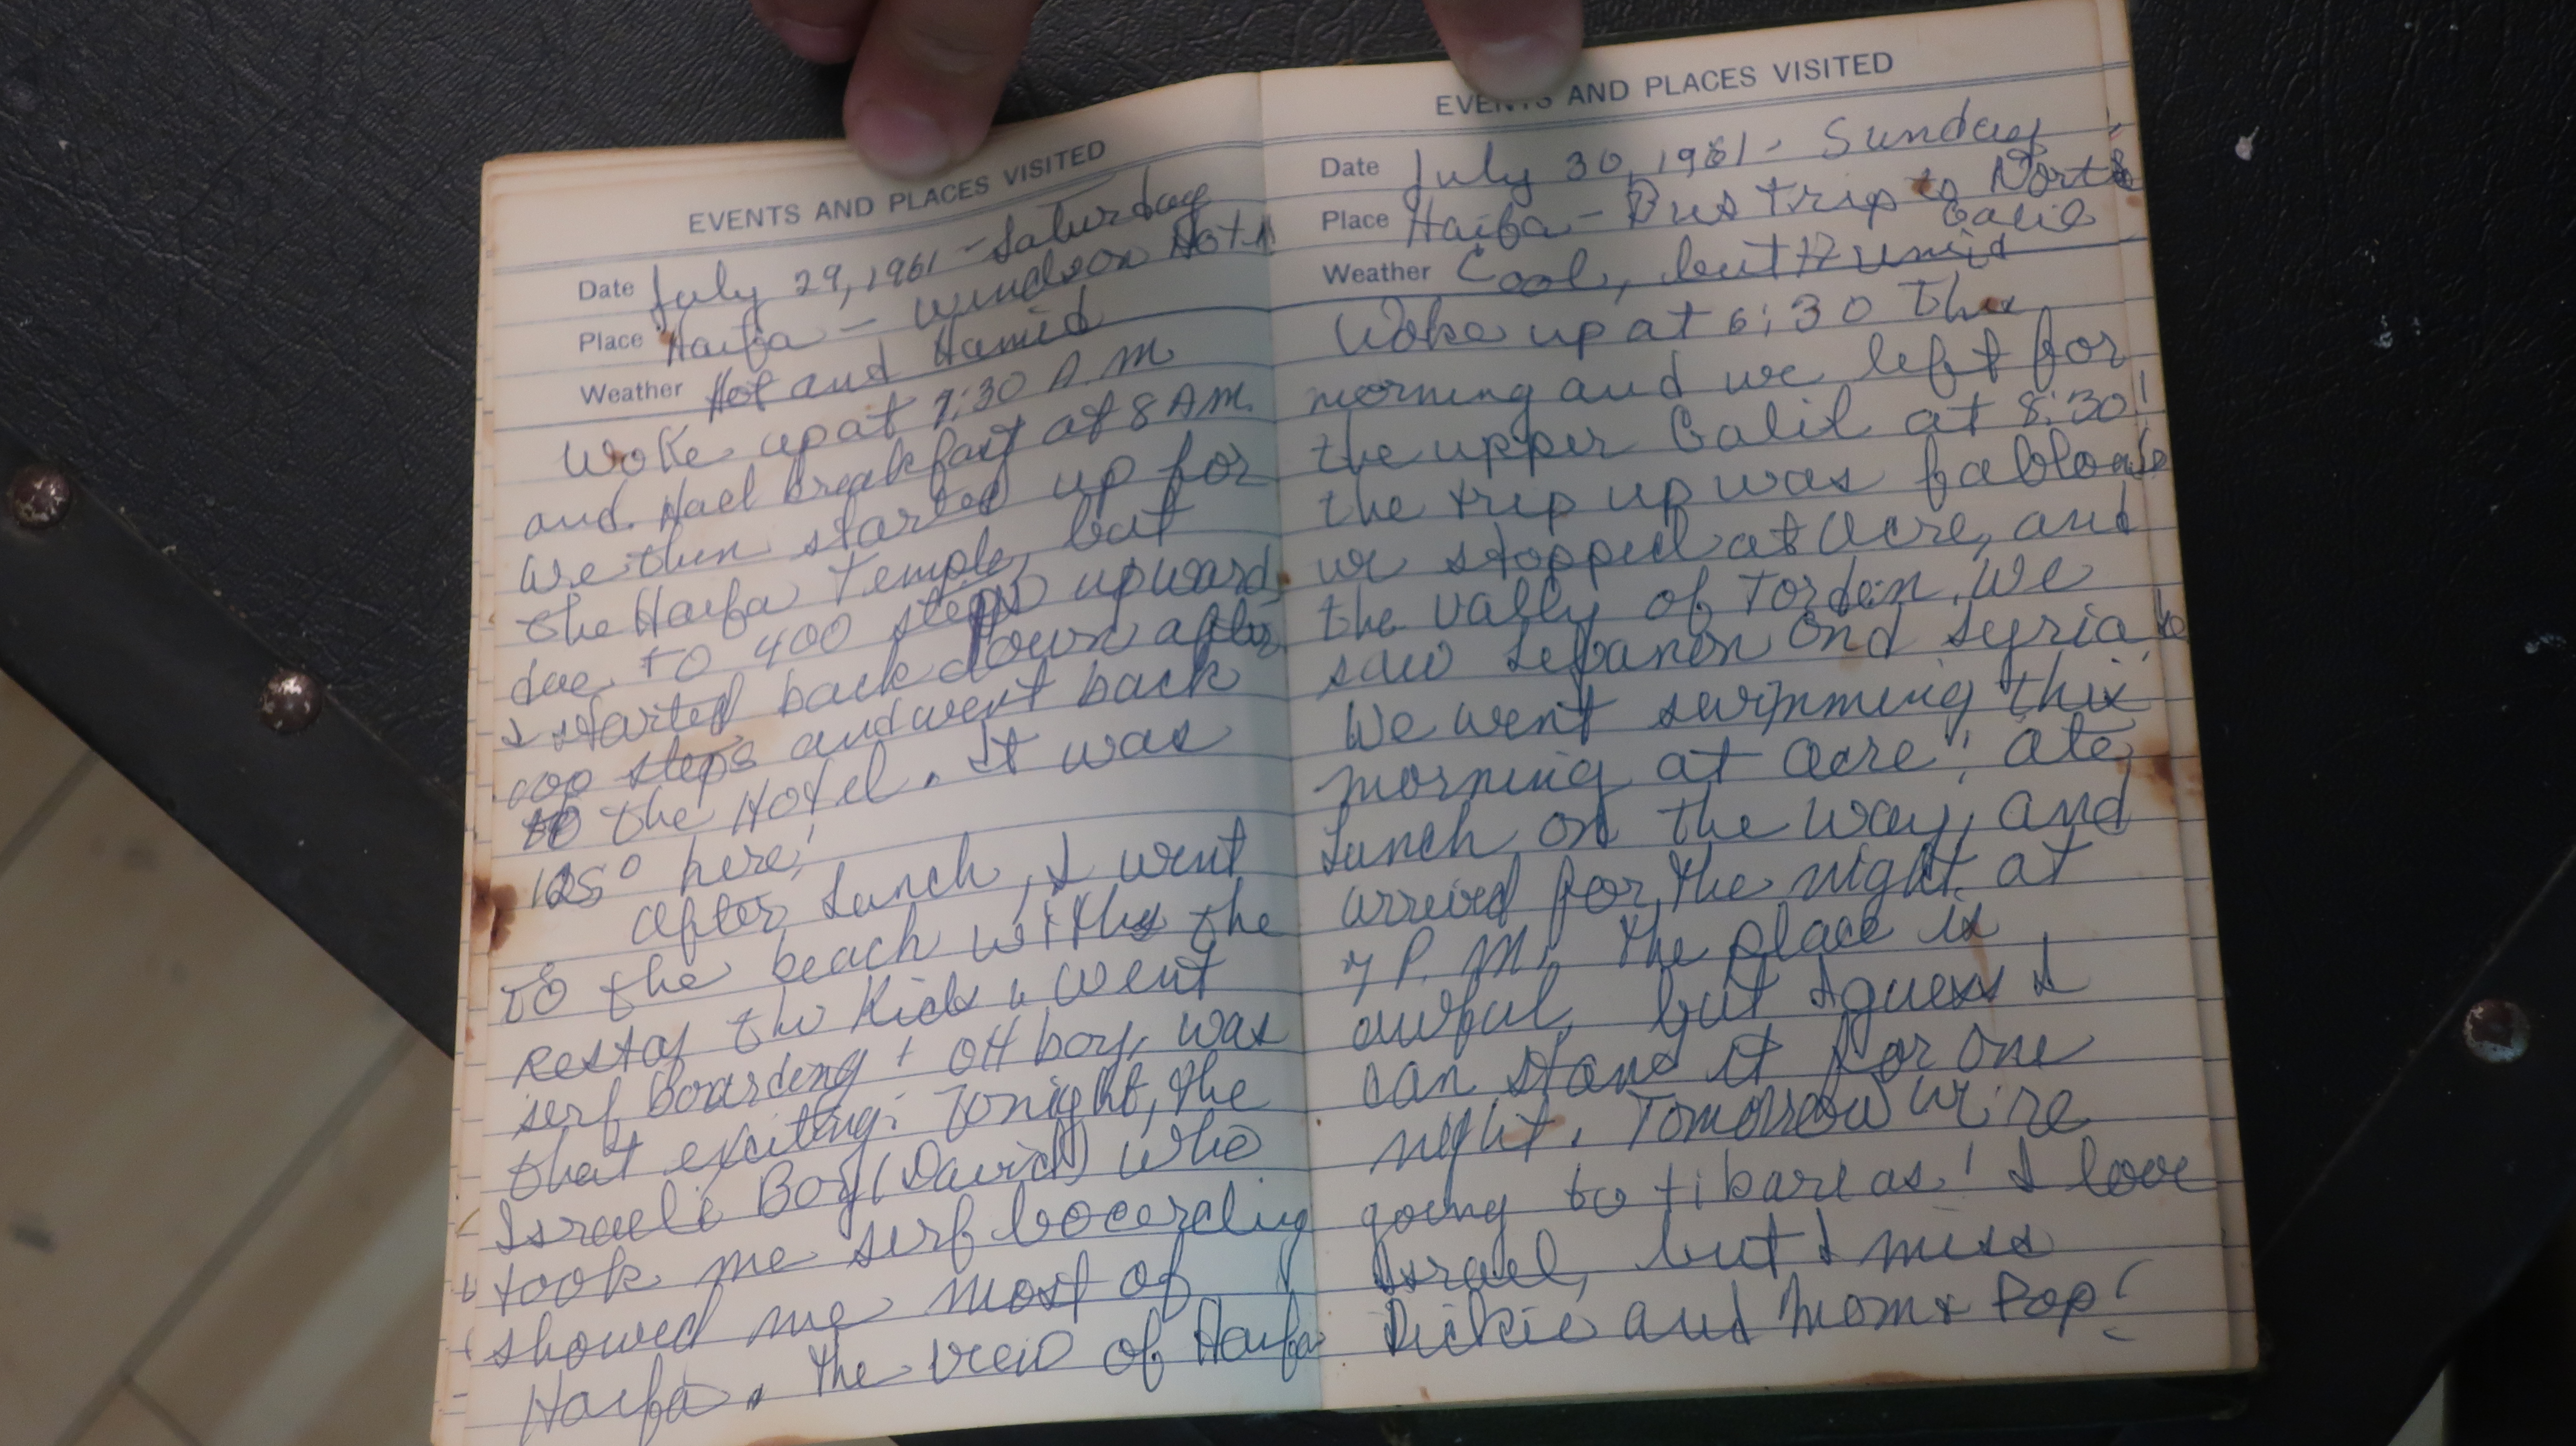 EVENTS AND PLACES VISITED
Date July 29, 1961 - Saturday
Place Haifa - Windsor Hotel
Weather Hot and Humid
Woke up at 7:30 A.M
and. Had breakfast at 8 AM.
We then started up for
the Haifa Temple, but
due to 400 steps upward
I started back down after
100 steps and went back
to the Hotel. It was
125° here!
After Lunch, I went
to the beach with the
rest of the kids & went
serf boarding! Oh boy, was
that exciting! Tonight, the
Israeli Boy (David) who
took me serf boarding
showed me most of
Haifa. The veiw of Haifa
EVENTS AND PLACES VISITED
Date July 30, 1961 - Sunday
Place Haifa - Bus trip to North
Galil
Weather Cool, but Humid
Woke up at 6:30 This
morning and we left for
the upper Galil at 8:30!
the trip up was
we stopped at Acre, and
the vally of Jordan. We
saw Lebanon and Syria
We went swimming this
morning at Acre! Ate
Lunch on the way, and
arrived for the night at
7 P.M. The place is
awful, but I guess I
can stand it for one
night. Tomorrow we're
going to tibareas! I love
Israel, but I miss
Dickie and Mom & Pop!